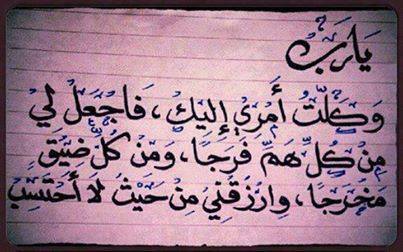 يَارَبُّ
وَكَّلْتُ أَمْرِي إِلَيْكَ، فَاجْعَلْ لِي
مِنْ كُلِّ هَمٍّ فَرَجًا، وَمِنْ كُلِّ ضَيْقٍ
مَخْرَجًا، وَارْزُقْنِي مِنْ حَيْثُ لَا أَحْتَسِبُ